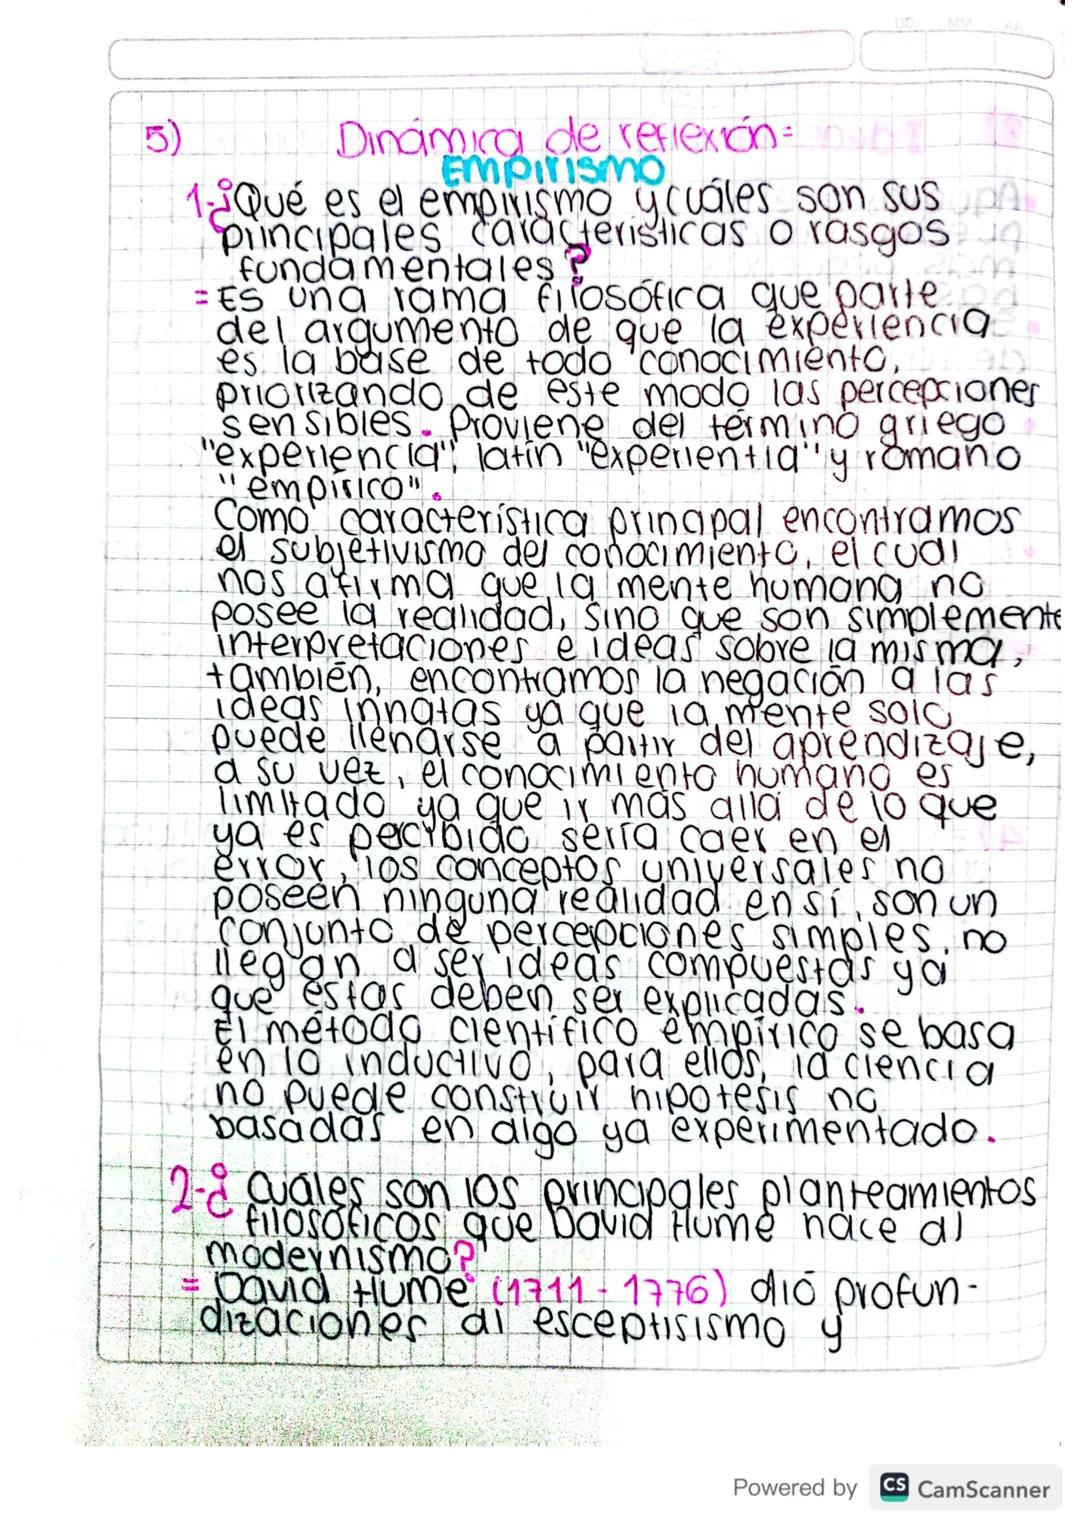 DD MM AA
5) Dinámica de reflexión=
EMPIRISMO
1-¿Qué es el empirismo y cuáles son sus
principales características o rasgos
fundamentales?
= Es una rama filosófica que parte
del argumento de que la experiencia
es la base de todo conocimiento,
priorizando de este modo las percepciones
sensibles. Proviene del término griego
"experiencia", latín "experientia" y romano
"empírico".
Como característica principal encontramos
el subjetivismo del conocimiento, el cual
nos afirma que la mente humana no
posee la realidad, sino que son simplemente
interpretaciones e ideas sobre la misma,
también, encontramos la negación a las
ideas innatas ya que la mente solo
puede llenarse a partir del aprendizaje,
a su vez, el conocimiento humano es
limitado ya que ir más allá de lo que
ya es percibido sería caer en el
error, los conceptos universales no
poseen ninguna realidad en sí, son un
conjunto de percepciones simples, no
llegan a ser ideas compuestas ya
que estas deben ser explicadas.
El método científico empírico se basa
en lo inductivo, para ellos, la ciencia
no puede construir hipótesis no
basadas en algo ya experimentado.
2-¿Cuáles son los principales planteamientos
filosóficos que David Hume hace al
modernismo?
= David Hume (1711-1776) dió profun-
dizaciones al esceptisismo y
Powered by CS CamScanner